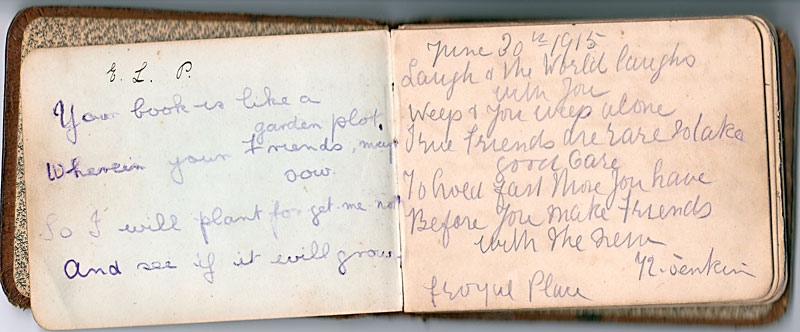 E. L. P.
Your book is like a
garden plot,
Wherein your Friends, may
sow.
So I will plant forget me not
And see if it will grow.
June 30th 1915
Laugh & the World laughs
with You
Weep & You weep alone
True Friends are rare so take
good Care
To hold fast those You have
Before You make Friends
with the new
Jenkin
Royal Place